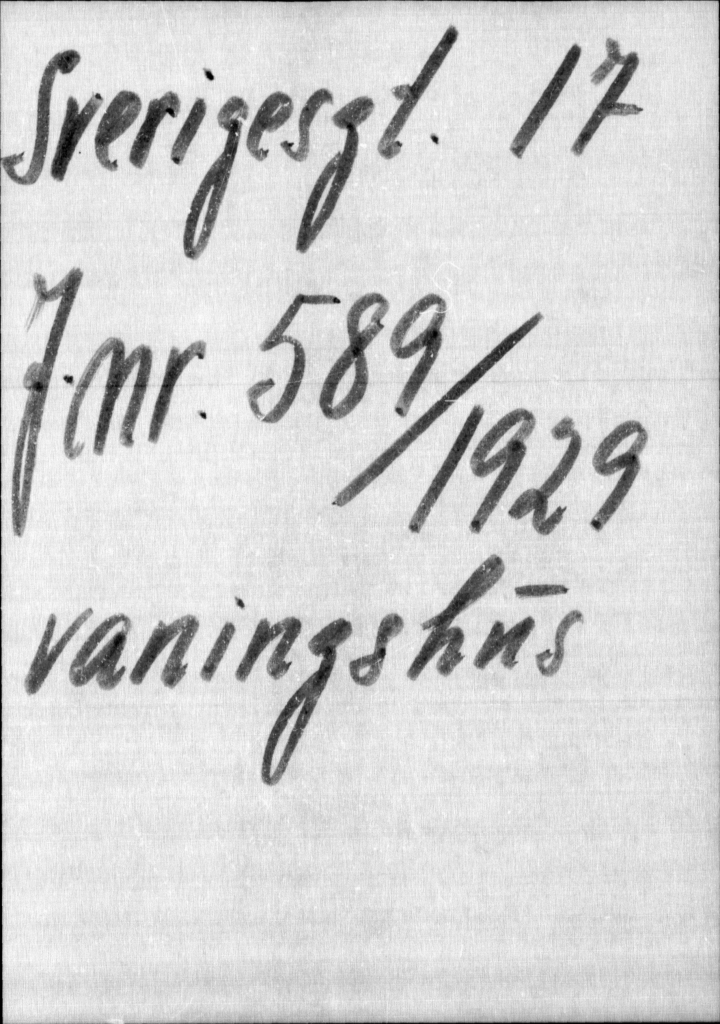 Sverigesgt. 17
J.nr. 589/1929
vaningshus